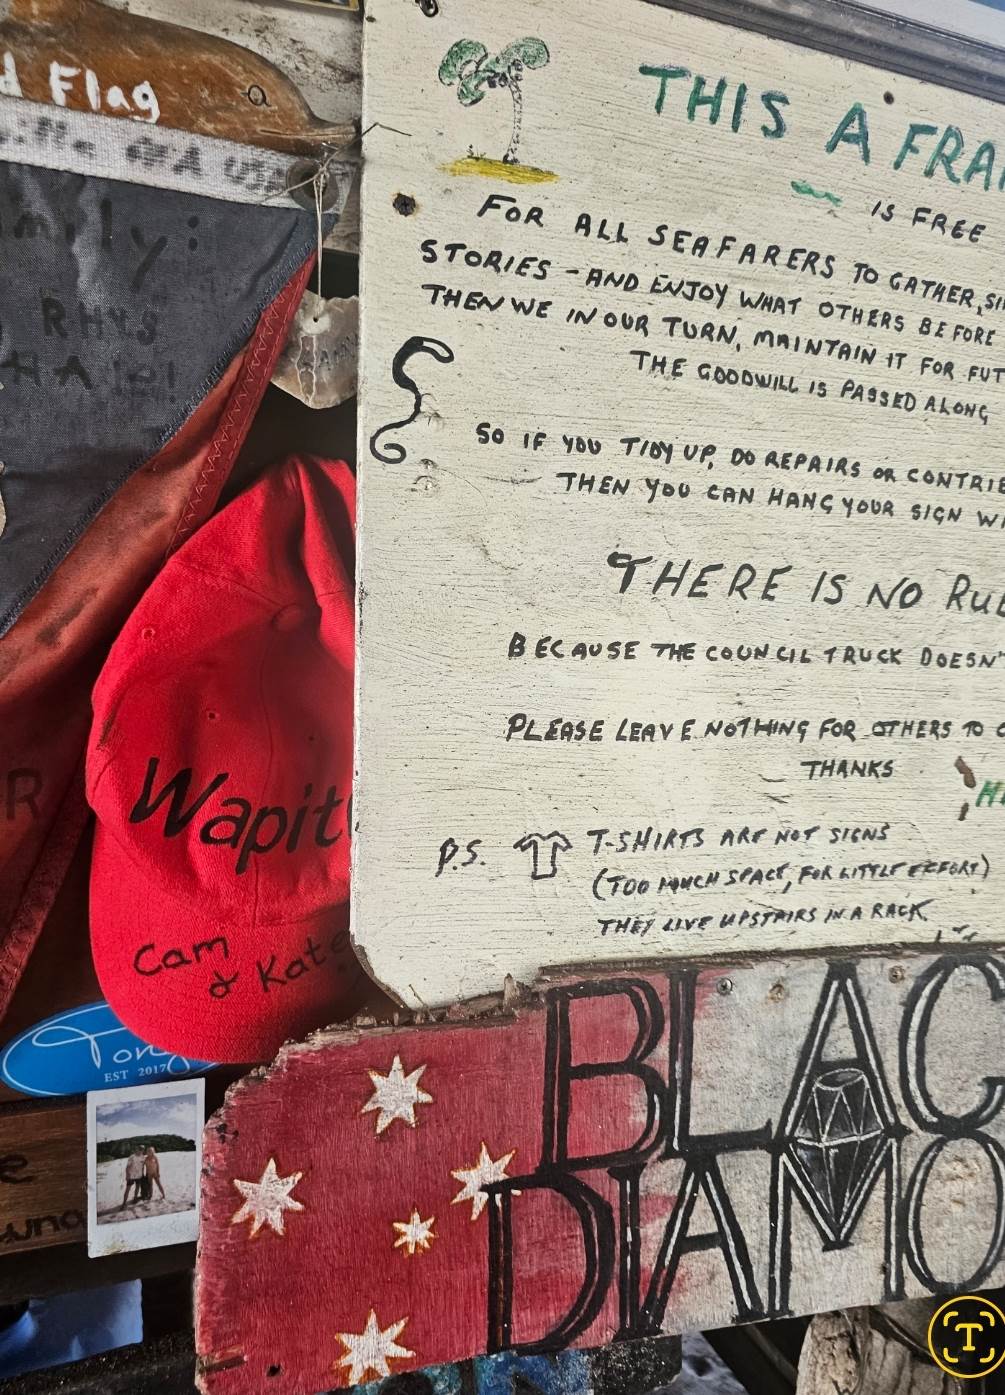 d Flag
OF A USA
mily:
RHYS
R
Wapit
Cam
& Kate
Tong
EST 2017
THIS A FRA
IS FREE
FOR ALL SEAFARERS TO GATHER, SI
STORIES - AND ENJOY WHAT OTHERS BEFORE
THEN WE IN OUR TURN, MAINTAIN IT FOR FUT
THE GOODWILL IS PASSED ALONG
SO IF YOU TIDY UP, DO REPAIRS OR CONTRIE
THEN YOU CAN HANG YOUR SIGN WI
THERE IS NO RUB
BECAUSE THE COUNCIL TRUCK DOESN'
PLEASE LEAVE NOTHING FOR OTHERS TO C
THANKS
P.S. T-SHIRTS ARE NOT SIGNS
(TOO MUCH SPACE, FOR LITTLE EFFORT)
THEY LIVE UPSTAIRS IN A RACK.
BLAC
DIAMO